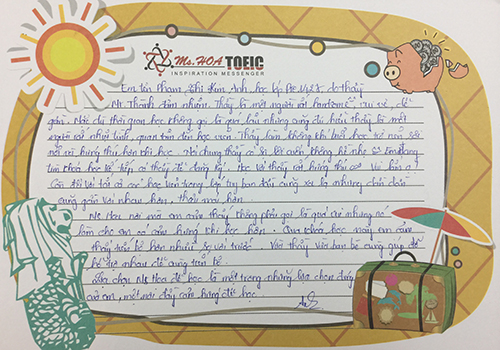 Ms. HOA TOEIC
INSPIRATION MESSENGER
Em tên Phạm Thị Kim Anh, học lớp Pre V258 do thầy
Mr. Thành đảm nhiệm. Thầy là một người rất handsome, vui vẻ, dễ
gần. Nói thì thời gian học không gọi là quá lâu nhưng cũng đủ hiểu thầy là một
người rất nhiệt tình, quan tâm đến học viên. Thầy làm không khí buổi học trở nên sôi
nổi và hứng thú hơn khi học. Nói chung thầy có sự lôi cuốn không hề nhẹ
khóa học kế tiếp có thầy để đăng ký. Học với thầy rất hứng thú Vui lắm ạ!
Còn đối với tất cả các học viên trong lớp tuy ban đầu cũng xa lạ nhưng dần dần
cũng gần với nhau hơn, thoải mái hơn.
Ms Hoa nơi mà em cảm thấy không phải gọi là quá cao nhưng nó
làm cho em có cảm hứng khi học hơn. Qua khóa học này em cảm
thấy tiến bộ hơn nhiều so với trước. Với thầy với bạn bè cùng giúp đỡ
hỗ trợ nhau để cùng tiến bộ.
Lựa chọn Ms Hoa để học là một trong những lựa chọn đúng
của em, một nơi đầy cảm hứng để học.